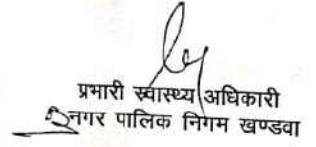 प्रभारी स्वास्थ्य अधिकारी
नगर पालिक निगम खण्डवा